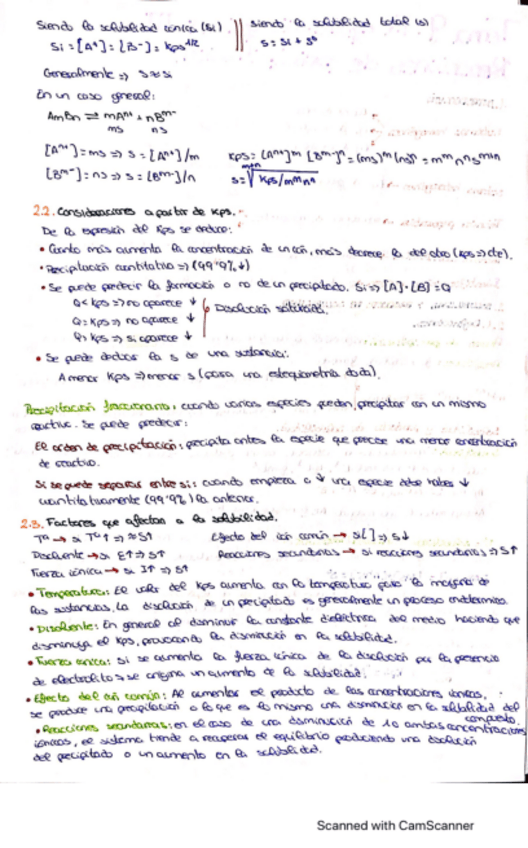 Siendo la solubilidad iónica (Si) || siendo la solubilidad total (s)
Si = [A⁺] = [B⁻] = Kps^1/2 s = Si + S°
Generalmente ⇒ S ≈ Si
En un caso general:
AmBn ⇌ mAⁿ⁺ + nBᵐ⁻
ms ns
[Aⁿ⁺] = ms ⇒ s = [Aⁿ⁺]/m Kps = [Aⁿ⁺]ᵐ [Bᵐ⁻]ⁿ = (ms)ᵐ (ns)ⁿ = mᵐ nⁿ sᵐ⁺ⁿ
[Bᵐ⁻] = ns ⇒ s = [Bᵐ⁻]/n s = ᵐ⁺ⁿ√Kps/mᵐnⁿ
2.2. Consideraciones a partir de Kps.
De la expresión del Kps se deduce:
• Cuanto más aumenta la concentración de un ión, más decrece la del otro (Kps ⇒ cte).
• Precipitación cuantitativa ⇒ (99'9% ↓)
• Se puede predecir la formación o no de un precipitado. Si ⇒ [A]·[B] = Q
Q < Kps ⇒ no aparece ↓
Q = Kps ⇒ no aparece ↓ Disolución saturada.
Q > Kps ⇒ si aparece ↓
• Se puede deducir la s de una sustancia:
A menor Kps ⇒ menor s (para una estequiometría dada).
Precipitación fraccionaria: cuando varias especies pueden precipitar con un mismo
reactivo. Se puede predecir:
El orden de precipitación: precipita antes la especie que precise una menor concentración
de reactivo.
Si se puede separar entre sí: cuando empieza a ↓ una especie debe haber ↓
cuantitativamente (99'9%) la anterior.
2.3. Factores que afectan a la solubilidad.
Tª → si Tª↑ ⇒ ≈ S↑ Efecto del ión común → si [ ] ⇒ s↓
Disolvente → si ε↑ ⇒ S↑ Reacciones secundarias → si reacciones secundarias ⇒ S↑
Fuerza iónica → si I↑ ⇒ S↑
• Temperatura: El valor del Kps aumenta con la temperatura para la mayoría de
las sustancias. La disolución de un precipitado es generalmente un proceso endotérmico.
• Disolvente: En general al disminuir la constante dieléctrica del medio haciendo que
disminuya el Kps, provocando la disminución en la solubilidad.
• Fuerza iónica: Si se aumenta la fuerza iónica de la disolución por la presencia
de electrolito ⇒ se origina un aumento de la solubilidad.
• Efecto del ión común: Al aumentar el producto de las concentraciones iónicas,
se produce una precipitación o lo que es lo mismo una disminución en la solubilidad del
compuesto.
• Reacciones secundarias: en el caso de una disminución de 1 o ambas concentraciones
iónicas, el sistema tiende a recuperar el equilibrio produciendo una disolución
del precipitado o un aumento en la solubilidad.
Scanned with CamScanner